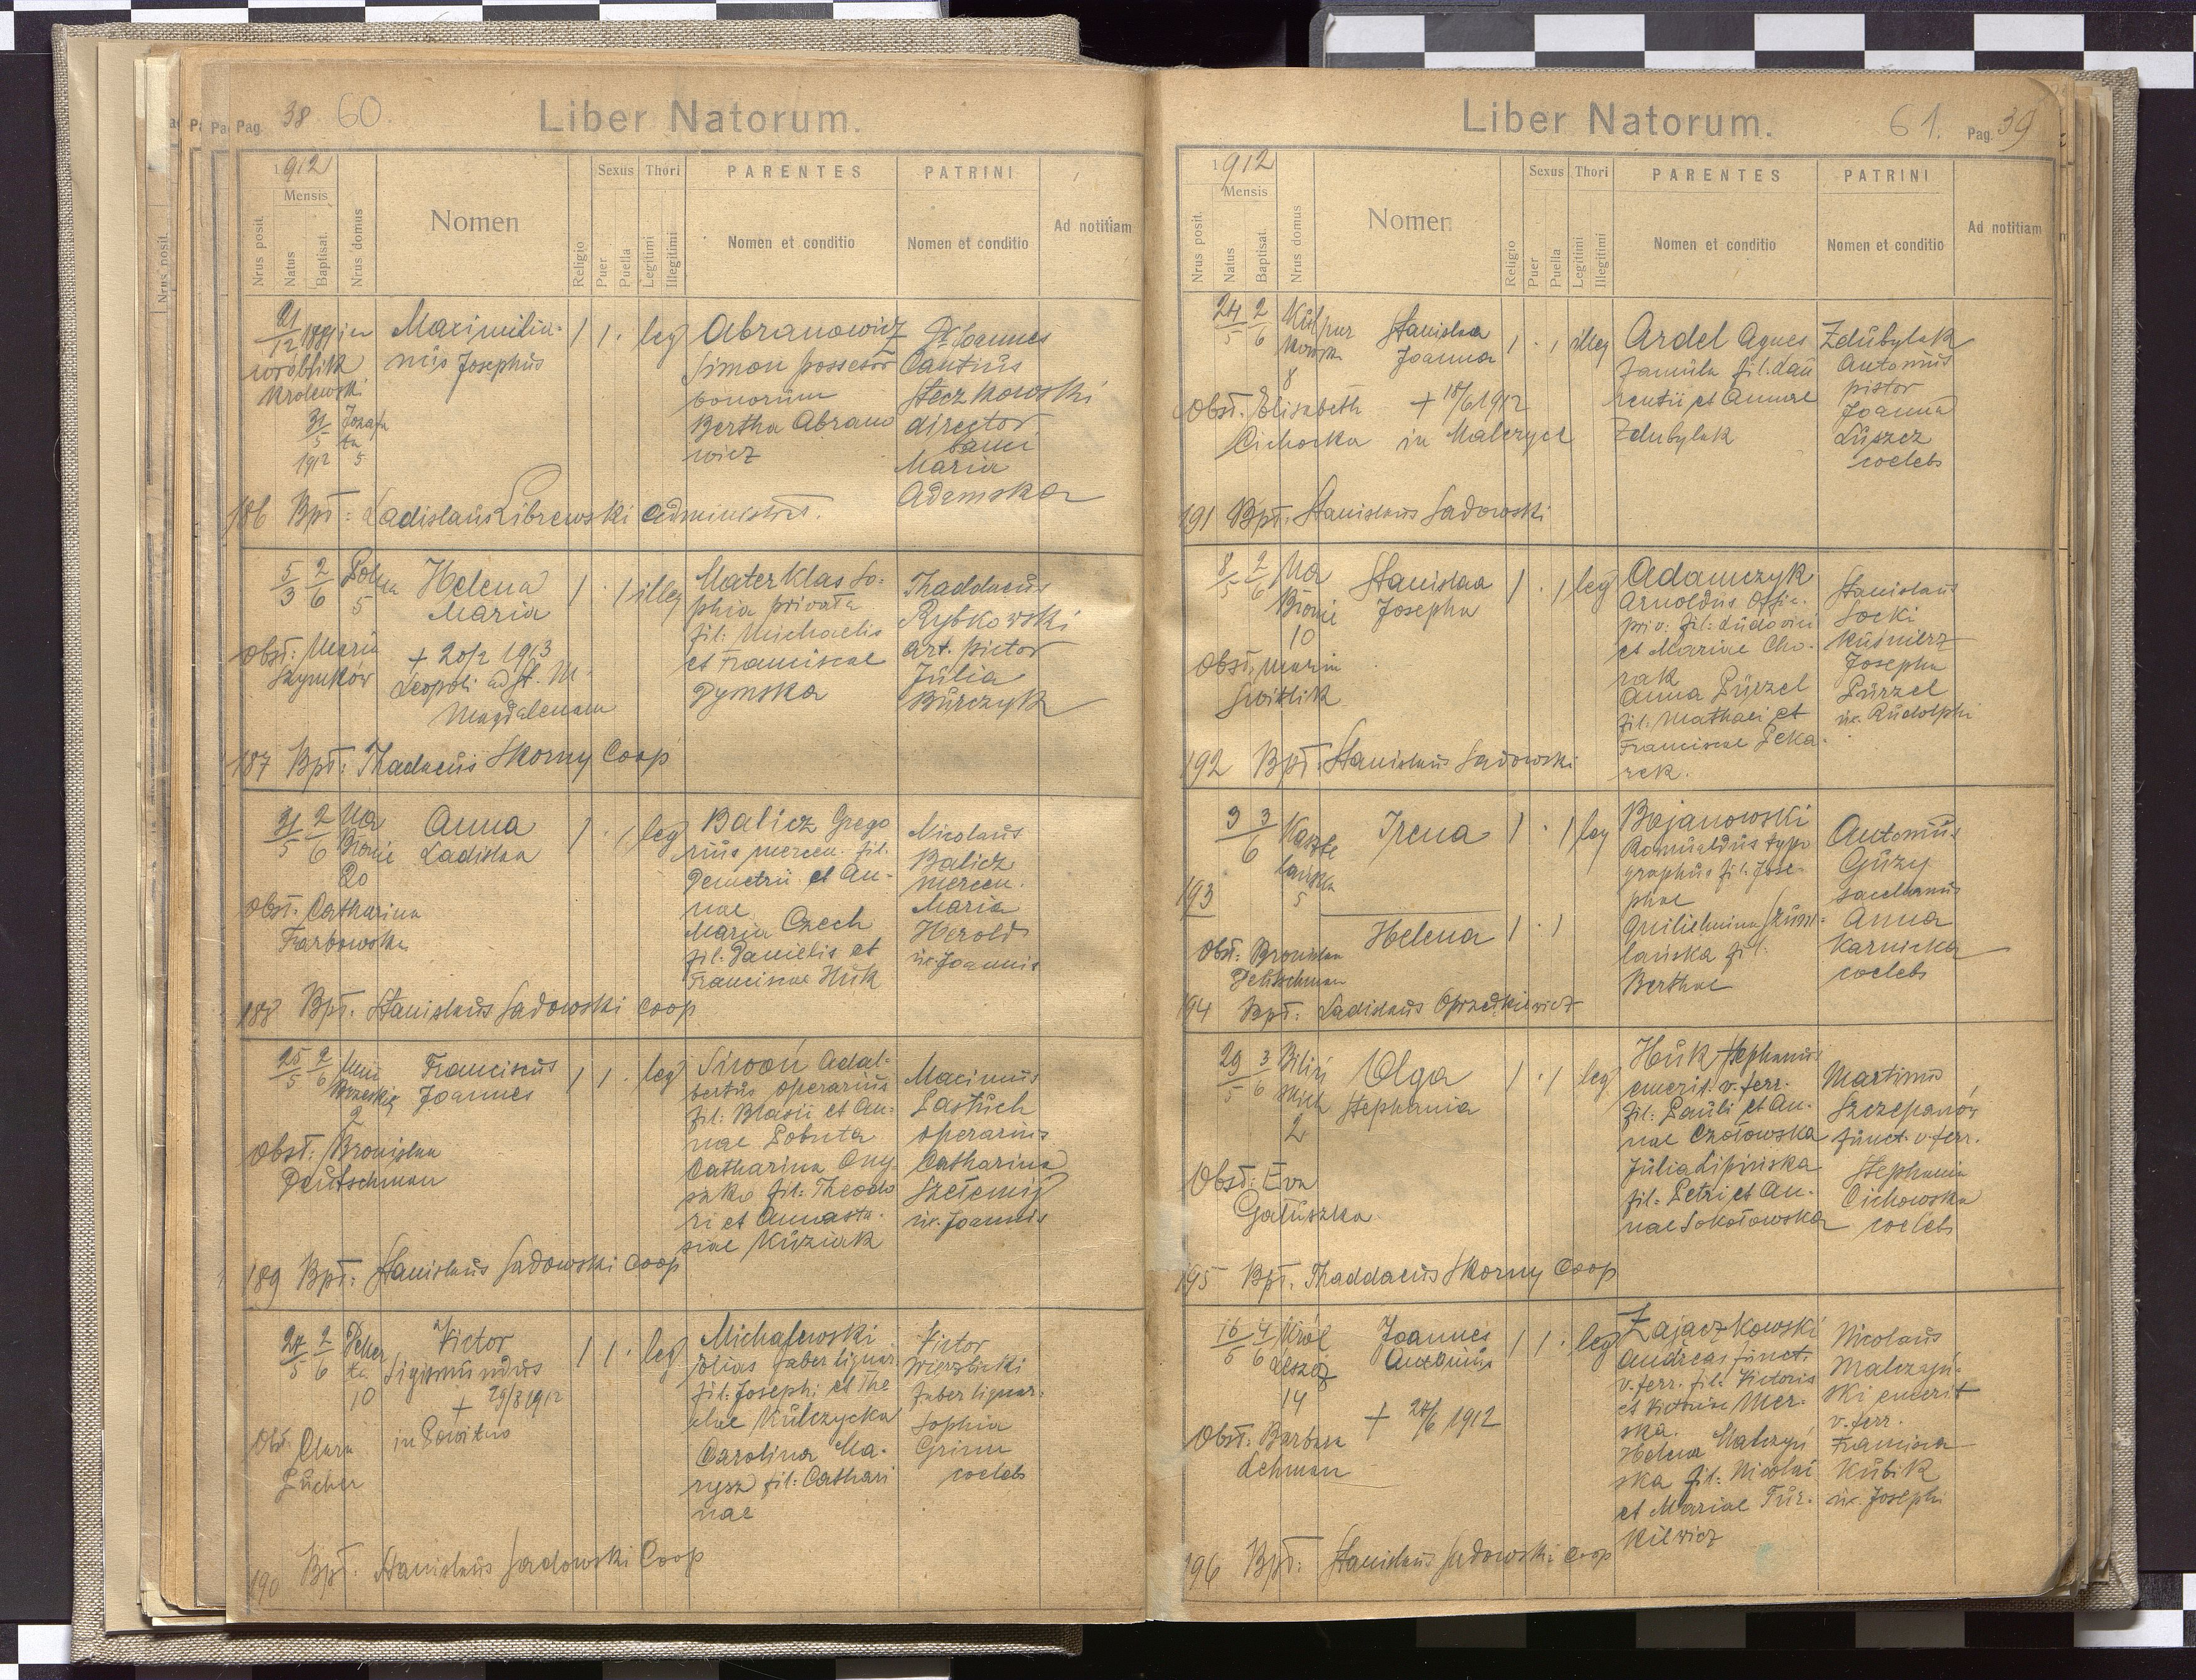 Pag. 38 60.
Liber Natorum.
1912
Mensis
Nrus posit.
Natus
Baptisat.
Nrus domus
Nomen
Religio
Sexus
Puer
Puella
Thori
Legitimi
Illegitimi
PARENTES
Nomen et conditio
PATRINI
Nomen et conditio
Ad notitiam
21/12 1889 in
31/5 1912
5
Maximilia-
nus Josephus
1 1 · leg
Abranowicz
Simon possesor
bonorum
Bertha Abrano
wicz
Dr Joannes
Cantius
Steczkowski
director
banci
Maria
Adamska
186 Bpt: Ladislaus Librewski administrat.
5/3 2/6
5
Helena
Maria
1 · 1 illeg
Mater Klas So-
phia privata
fil: Michaelis
et Franciscae
Dymska
Thaddaeus
Rybkowski
art. pictor
Julia
Burczyk
Obst: Maria
Szymków
+ 20/2 1913
Leopoli ad St. M.
Magdalenam
187 Bpt: Thadaeus Skorny Coop
31/5 2/6 Na
Błonie
20
Anna
Ladislaa
1 · 1 leg
Balicz Grego
rius mercen. fil.
Demetrii et An-
nae
Maria Czech
fil. Danielis et
Franciscae Huk
Nicolaus
Balicz
mercen.
Maria
Herold
ux. Joannis
Obst. Catharina
Tarbowska
188 Bpt. Stanislaus Sadowski Coop
25/5 2/6
2
Franciscus
Joannes
1 1 · leg
Siwoń Adal-
bertus operarius
fil. Blasii et An-
nae Pobuta
Catharina Ony
szko fil: Theodo
ri et Annasta-
siae Kuziak
Maximus
Pastuch
operarius
Catharina
ux. Joannis
Obst: Bronislaa
Deutschman
189 Bpt: Stanislaus Sadowski Coop
27/5 2/6
10
Victor
Sigismundus
+ 29/8 1912
1 1 · leg
Michalewski
Julius faber lignar.
fil. Josephi et The
clae Kulczycka
Carolina Ma-
rysz fil: Cathari
nae
Victor
Wierzbicki
faber lignar.
Sophia
Grimm
coelebs
Obst. Clara
Lucher
190 Bpt. Stanislaus Sadowski Coop
Liber Natorum.
61. Pag. 39
1912
Mensis
Nrus posit.
Natus
Baptisat.
Nrus domus
Nomen
Religio
Sexus
Puer
Puella
Thori
Legitimi
Illegitimi
PARENTES
Nomen et conditio
PATRINI
Nomen et conditio
Ad notitiam
24/5 2/6
8
Stanislaa
Joanna
1 · 1 illeg
Ardel Agnes
famula fil. Lau
rentii et Annae
Zdubylak
Zdubylak
Antonius
pistor
Joanna
Luszcz
coelebs
Obst. Elisabeth
Cichocka
+ 18/6 1912
191 Bpt. Stanislaus Sadowski
8/5 2/6 Na
Błonie
10
Stanislaa
Josepha
1 · 1 leg
Adamczyk
Arnoldus offic.
priv: fil: Ludovici
et Mariae Cho-
rak
Anna Purzel
fil: Mathaei et
Franciscae Peka-
rek.
Stanislaus
Socki
kuśnierz
Josepha
Purzel
ux. Rudolphi
Obst. Maria
Switlik
192 Bpt. Stanislaus Sadowski
3/6 3/6 Kaszte
lańska
5
Irena
1 · 1 leg
Bojanowski
Romualdus typo
graphus fil. Jose-
phae
lańska fil.
Berthae
Antonius
Guzy
Anna
Karnicka
coelebs
193
Helena 1 · 1
Obst: Bronislaa
Deutschman
194 Bpt: Ladislaus Oprzędkiewicz
29/5 3/6 Biliń
skich
2
Olga
Stephania
1 · 1 leg
Huk Stephanus
emerit. v. ferr.
fil: Pauli et An-
nae Czołowska
Julia Lipińska
fil: Petri et An-
nae Sokołowska
Martinus
Szczepanów
funct. v. ferr.
Stephania
Cichowska
coelebs
Obst: Eva
Gałuszka
195 Bpt. Thaddaeus Skorny Coop
16/5 4/6 Król
Leszcz
14
Joannes
Antonius
1 1 · leg
Zajączkowski
Andreas funct.
v. ferr. fil: Victoris
et Victoriae Mer-
ska.
Helena Malczyń
ska fil: Nicolai
et Mariae Tur-
kiewicz
Nicolaus
Malczyń-
ski emerit
v. ferr.
Francisca
Kubik
ux. Josephi
+ 24/6 1912
Obst: Barbara
Lehman
196 Bpt: Stanislaus Sadowski Coop